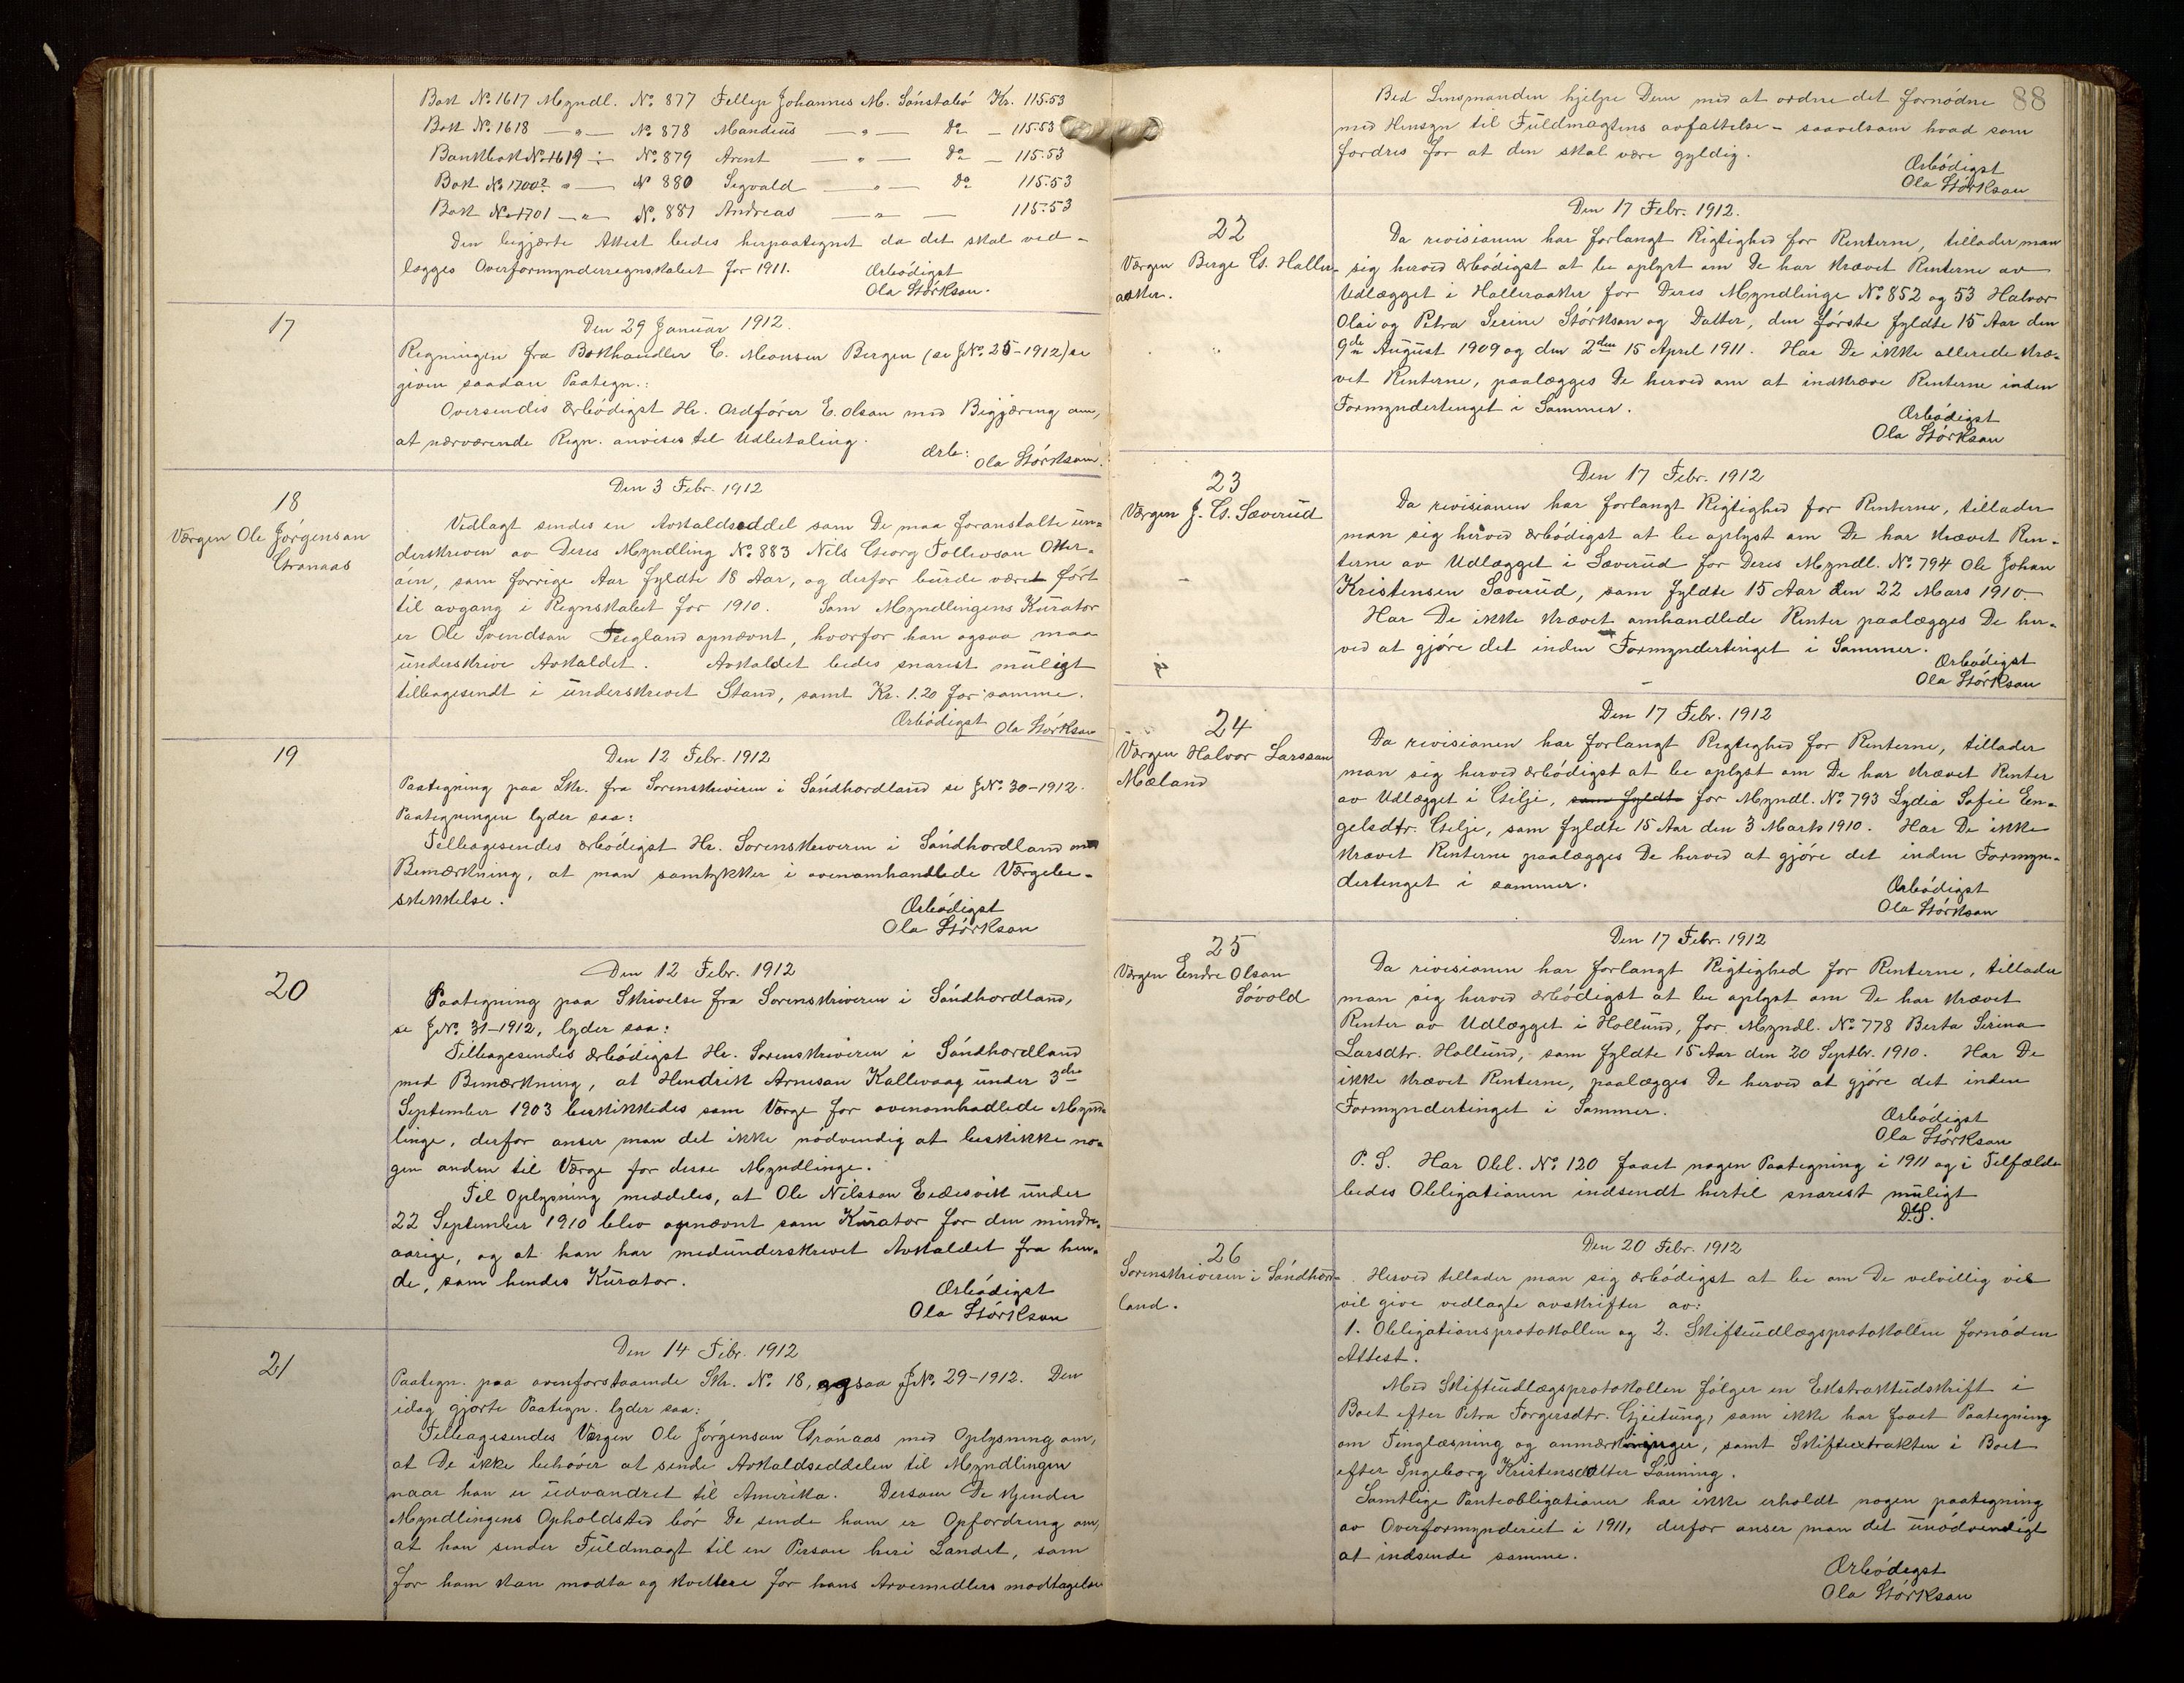 Bok No. 1617 Myndl. No. 877 Fellip Johannes M. Sönstabö Kr. 115.53
Bok No. 1618 — " — No. 878 Mandius — " — Do — 115.53
Bankbok No. 1619 — No. 879 Arent — " — Do — 115.53
Bok No. 1700? " — No 880 Sigvald — " — Do 115.53
Bok No. 1701 — " — No. 881 Andreas — " — 115.53
Den begjærte Attest bedes herpaategnet da det skal ved-
lægges Overformynderregnskabet for 1911.
Ærbödigst
Ola Störkson.
17
Den 29 Januar 1912.
Regningen fra Bokhandler C. Monsen Bergen (se J.No. 25-1912) er
given saadan Paategn.:
Oversendes ærbödigst Hr. Ordförer E. Olson med Begjæring om,
at nærværende Regn. anvises til Udbetaling.
Ærb:
Ola Störkson.
18
Værgen Ole Jörgenson
Grønaas
Den 3 Febr. 1912
Vedlagt sendes en Avkaldseddel som De maa foranstalte un-
derskreven av Deres Myndling No. 883 Nils Georg Tollevson Otter-
öen, som forrige Aar fyldte 18 Aar, og derfor burde været fört
til avgang i Regnskabet for 1910. Som Myndlingens Kurator
er Ole Svendson Tegland opnævnt, hvorfor han ogsaa maa
underskrive Avkaldet. Avkaldet bedes snarest muligt
tilbagesendt i underskrevet Stand, samt Kr. 1.20 for samme.
Ærbödigst Ola Störkson
19
Den 12 Febr. 1912
Paategning paa Skr. fra Sorenskriveren i Söndhordland se J.No. 30-1912.
Paategningen lyder saa:
Tilbagesendes ærbödigst Hr. Sorenskriveren i Söndhordland med
Bemærkning, at man samtykker i ovenomhandlede Værgebe-
skikkelse.
Ærbödigst
Ola Störkson
20
Den 12 Febr. 1912
Paategning paa Skrivelse fra Sorenskriveren i Söndhordland,
se J.No. 31-1912, lyder saa:
Tilbagesendes ærbödigst Hr. Sorenskriveren i Söndhordland
med Bemærkning, at Hendrik Arneson Kallevaag under 3die
September 1903 beskikkedes som Værge for ovenomhadlede Mynd-
linge, derfor anser man det ikke nödvendig at beskikke no-
gen anden til Værge for disse Myndlinge.
Til Oplysning meddeles, at Ole Nilsson Eidesvik under
22 September 1910 blev opnævnt som Kurator for den mindre-
aarige, og at han har medunderskrevet Avkaldet fra hen-
de, som hendes Kurator.
Ærbödigst
Ola Störkson
21
Den 14 Febr. 1912
Paategn. paa ovenforstaaende Skr. No. 18, ogsaa J.No. 29-1912. Den
idag gjorte Paategn. lyder saa:
Tilbagesendes Værgen Ole Jörgenson Grönaas med Oplysning om,
at De ikke behöver at sende Avkaldseddelen til Myndlingen
naar han er udvandret til Amerika. Dersom De kjender
Myndlingens Opholdsted bör De sende ham er Opfordring om,
at han sender Fuldmagt til en Person heri Landet, som
for ham kan modta og kvittere for hans Arvemidlers modtagelse
88
Bed Lensmanden hjelpe Dem med at ordne det fornödne
med Hensyn til Fuldmagtens avfattelse - saavelsom hvad som
fordres for at den skal være gyldig.
Ærbödigst
Ola Störkson
22
Værgen Berge G. Haller-
aaker.
Den 17 Febr. 1912.
Da revisionen har forlangt Rigtighed for Renterne, tillader man
sig herved ærbödigst at be oplyst om De har krævet Renterne av
Udlægget i Halleraaker for Deres Myndlinge No. 852 og 53 Halvor
Olai og Petra Serine Störkson og Datter, den förste fyldte 15 Aar den
9de August 1909 og den 2den 15 April 1911. Har De ikke allerede kræ-
vet Renterne, paalægges De herved om at indkræve Renterne inden
Formyndertinget i Sommer.
Ærbödigst
Ola Störkson
23
Værgen J. G. Sæverud
Den 17 Febr. 1912
Da revisionen har forlangt Rigtighed for Renterne, tillader
man sig herved ærbödigst at be oplyst om De har krævet Ren-
terne av Udlægget i Sæverud for Deres Myndl. No. 794 Ole Johan
Kristensen Sæverud, som fyldte 15 Aar den 22 Mars 1910.
Har De ikke krævet omhandlede Renter paalægges De her-
ved at gjöre det inden Formyndertinget i Sommer.
Ærbödigst
Ola Störkson
24
Værgen Halvor Larsson
Mæland
Den 17 Febr. 1912
Da revisionen har forlangt Rigtighed for Renterne, tillader
man sig herved ærbödigst at be oplyst om De har krævet Renter
av Udlægget i Gilje, som fyldte for Myndl. No. 793 Lydia Sofie En-
gelsdtr. Gilje, som fyldte 15 Aar den 3 Mark 1910. Har De ikke
krævet Renterne paalægges De herved at gjöre det inden Formyn-
dertinget i sommer.
Ærbödigst
Ola Störkson
25
Værgen Endre Olson
Sövold
Den 17 Febr. 1912
Da revisionen har forlangt Rigtighed for Renterne, tillader
man sig herved ærbödigst at be oplyst om De har krævet
Renter av Udlægget i Hollund, for Myndl. No. 778 Berta Serina
Larsdtr. Hollund, som fyldte 15 Aar den 20 Septbr. 1910. Har De
ikke krævet Renterne, paalægges De herved at gjöre det inden
Formyndertinget i Sommer.
Ærbödigst
Ola Störkson
P. S. Har Obl. No. 120 faaet nogen Paategning i 1911 og i Tilfælde
bedes Obligationen indsendt hertil snarest muligt
D.S.
26
Sorenskriveren i Söndhord-
land.
Den 20 Febr. 1912
Herved tillader man sig ærbödigst at be om De velvillig vil
vil give vedlagte avskrifter av:
1. Obligationsprotokollen og 2. Skifteudlægsprotokollen fornöden
Attest.
Med Skifteudlægsprotokollen fölger en Ekstraktudskrift i
Boet efter Petra Torgersdtr. Gjeitung, som ikke har faaet Paategning
om Tinglæsning og anmærkninger, samt Skifteextrakten i Boet
efter Ingeborg Kristensdatter Lönning.
Samtlige Panteobligationer har ikke erholdt nogen paategning
av Overformynderiet i 1911, derfor anser man det unödvendigt
at indsende samme.
Ærbödigst
Ola Störkson